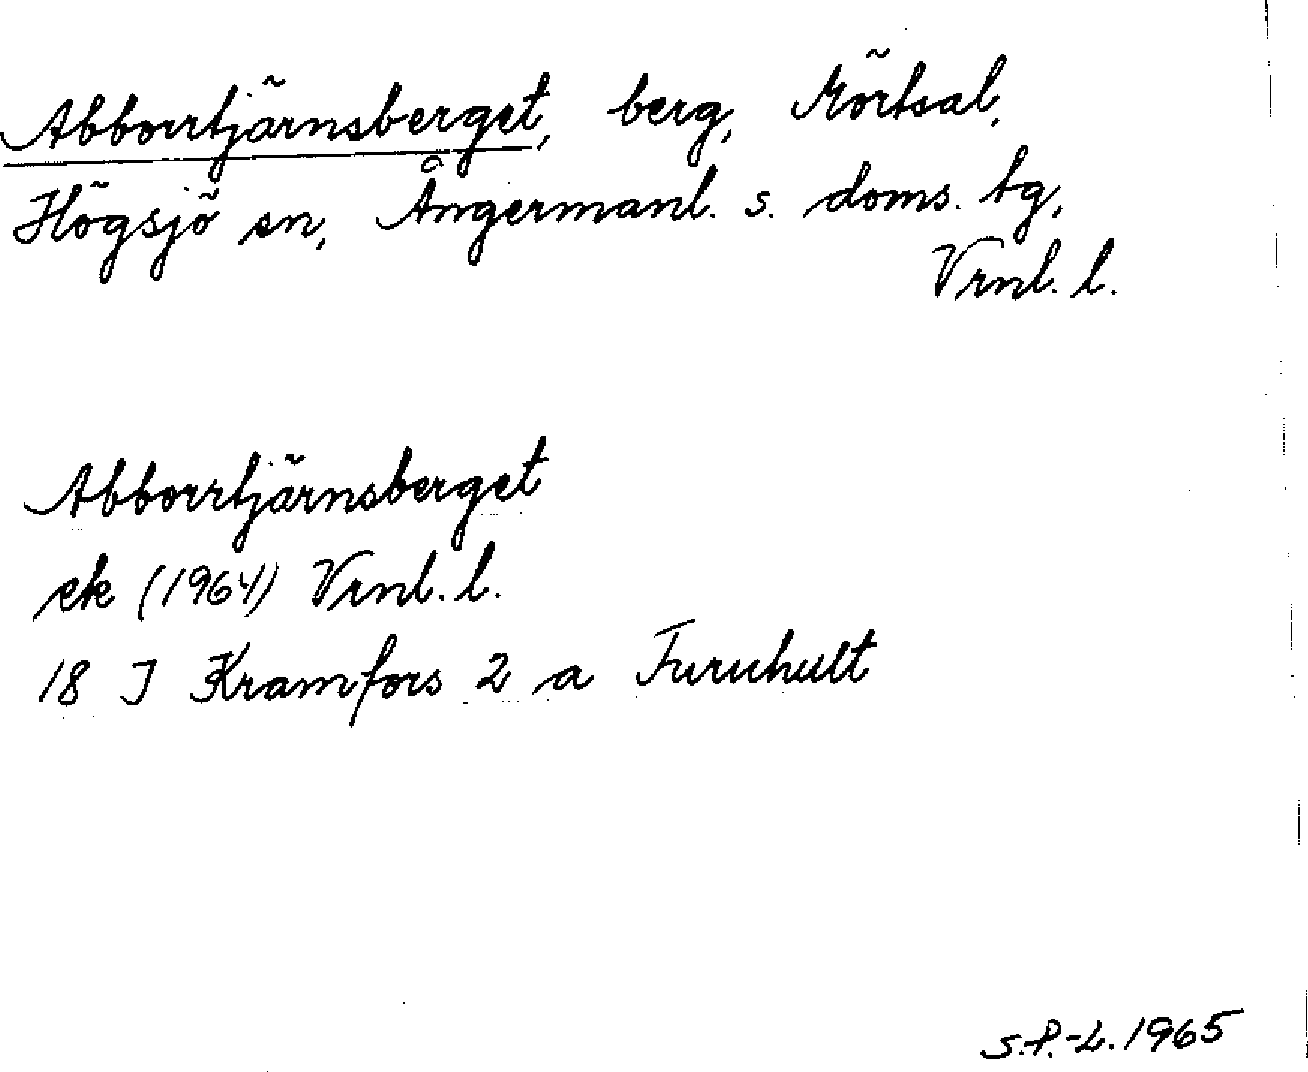 Abborrtjärnsberget, berg, Mörtsal,
Högsjö sn, Ångermanl. s. doms. tg,
Vrnl. l.
Abborrtjärnsberget
ek (1964) Vrnl. l.
18 I Kramfors 2 a Furuhult
S.P.-L. 1965